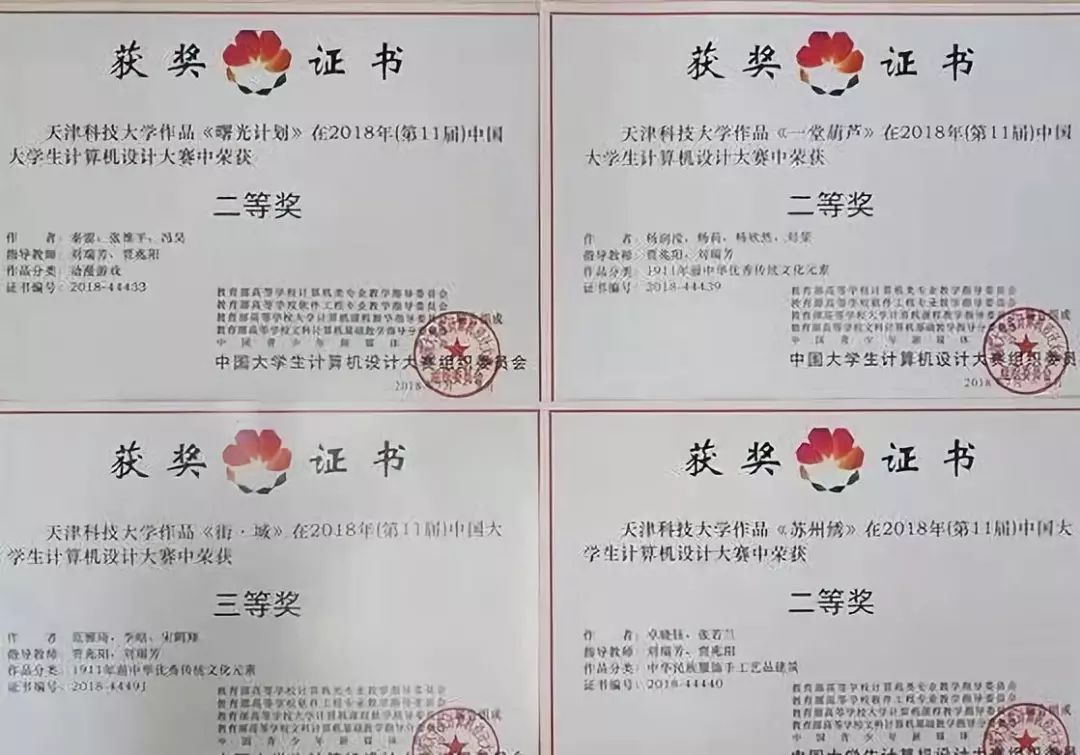 获奖证书
天津科技大学作品《曙光计划》在2018年(第11届)中国
大学生计算机设计大赛中荣获
二等奖
作 者:
指导教师:刘瑞芳、贾兆阳
作品分类:动漫游戏
证书编号:2018-44433
教育部高等学校计算机类专业教学指导委员会
教育部高等学校软件工程专业教学指导委员会
教育部高等学校大学计算机课程教学指导委员会
教育部高等学校文科计算机基础教学指导分委员会
中国青少年新媒体
组成
中国大学生计算机设计大赛组织委员会
获奖证书
天津科技大学作品《一堂葫芦》在2018年(第11届)中国
大学生计算机设计大赛中荣获
二等奖
作 者:
指导教师:贾兆阳、刘瑞芳
作品分类:1911年前中华优秀传统文化元素
证书编号:2018-44439
教育部高等学校计算机类专业教学指导委员会
教育部高等学校软件工程专业教学指导委员会
教育部高等学校大学计算机课程教学指导委员会
教育部高等学校文科计算机基础教学指导分委员会
中国青少年新媒体
组成
中国大学生计算机设计大赛组织委员会
获奖证书
天津科技大学作品《街·城》在2018年(第11届)中国大
学生计算机设计大赛中荣获
三等奖
作 者
指导教师:贾兆阳、刘瑞芳
作品分类:1911年前中华优秀传统文化元素
证书编号:2018-44491
教育部高等学校计算机类专业教学指导委员会
教育部高等学校软件工程专业教学指导委员会
教育部高等学校大学计算机课程教学指导委员会
教育部高等学校文科计算机基础教学指导分委员会
中国青少年新媒体
组成
获奖证书
天津科技大学作品《苏州绣》在2018年(第11届)中国大
学生计算机设计大赛中荣获
二等奖
作 者:卓晓钰、张若兰
指导教师:刘瑞芳、贾兆阳
作品分类:中华民族服饰手工艺品建筑
证书编号:2018-44440
教育部高等学校计算机类专业教学指导委员会
教育部高等学校软件工程专业教学指导委员会
教育部高等学校大学计算机课程教学指导委员会
教育部高等学校文科计算机基础教学指导分委员会
中国青少年新媒体
组成